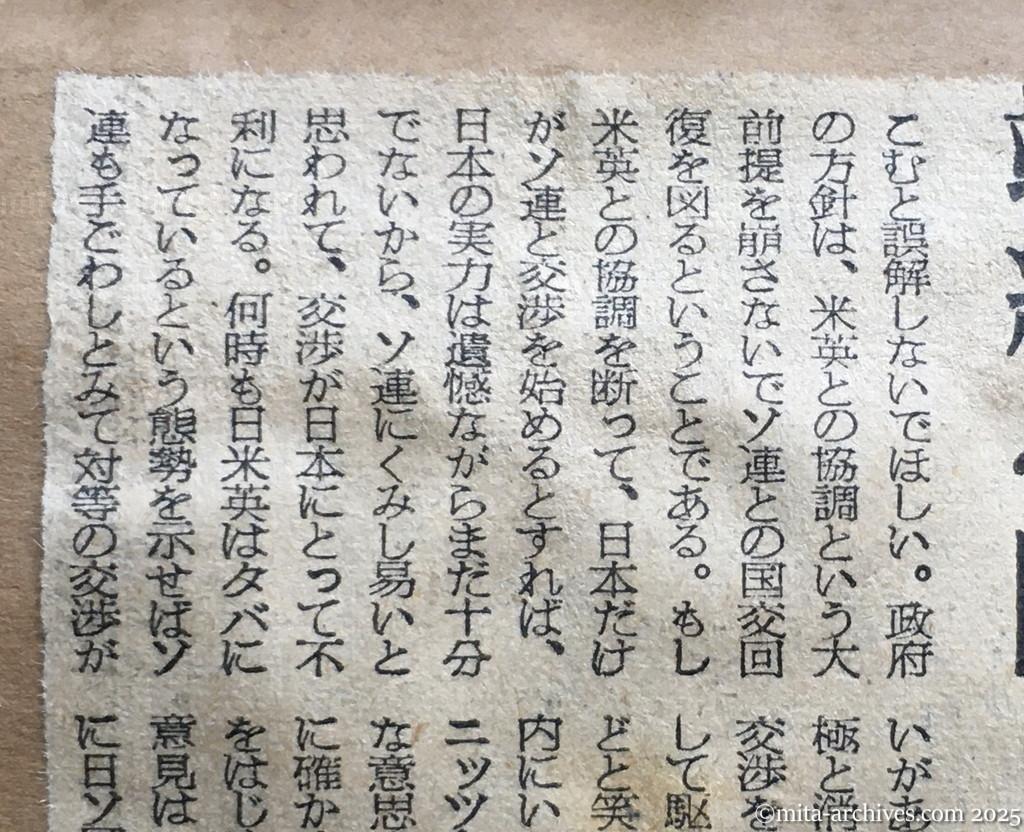 こむと誤解しないでほしい。政府
の方針は、米英との協調という大
前提を崩さないでソ連との国交回
復を図るということである。もし
米英との協調を断って、日本だけ
がソ連と交渉を始めるとすれば、
日本の実力は遺憾ながらまだ十分
でないから、ソ連にくみし易いと
思われて、交渉が日本にとって不
利になる。何時も日米英はタバに
なっているという態勢を示せばソ
連も手ごわしとみて対等の交渉が
いが
極と
交渉を
して駆
どと笑
内にい
ニッツ
な意思
に確か
をはじ
意見は
に日ソ
©mita-archives.com 2025